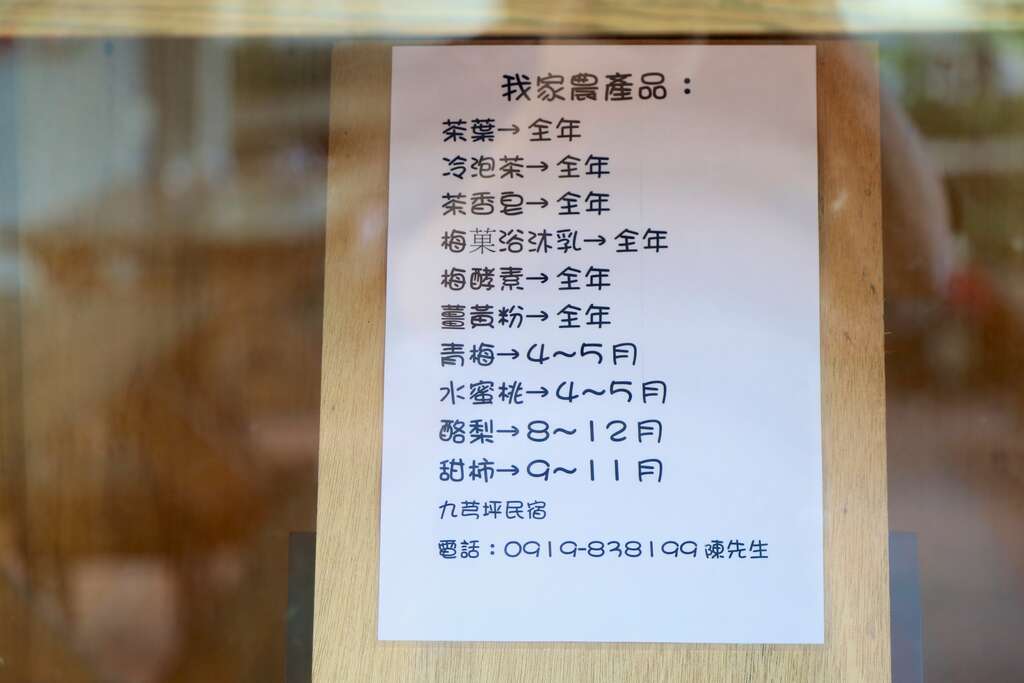 我家農產品：
茶葉→全年
冷泡茶→全年
茶香皂→全年
梅菓浴沐乳→全年
梅酵素→全年
薑黃粉→全年
青梅→4~5月
水蜜桃→4~5月
酪梨→8~12月
甜柿→9~11月
九芎坪民宿
電話：0919-838199陳先生